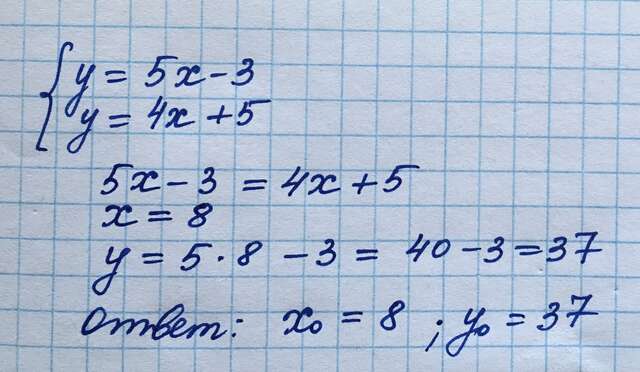 y = 5x - 3
y = 4x + 5
5x - 3 = 4x + 5
x = 8
y = 5 · 8 - 3 = 40 - 3 = 37
Ответ: x₀ = 8 ; y₀ = 37